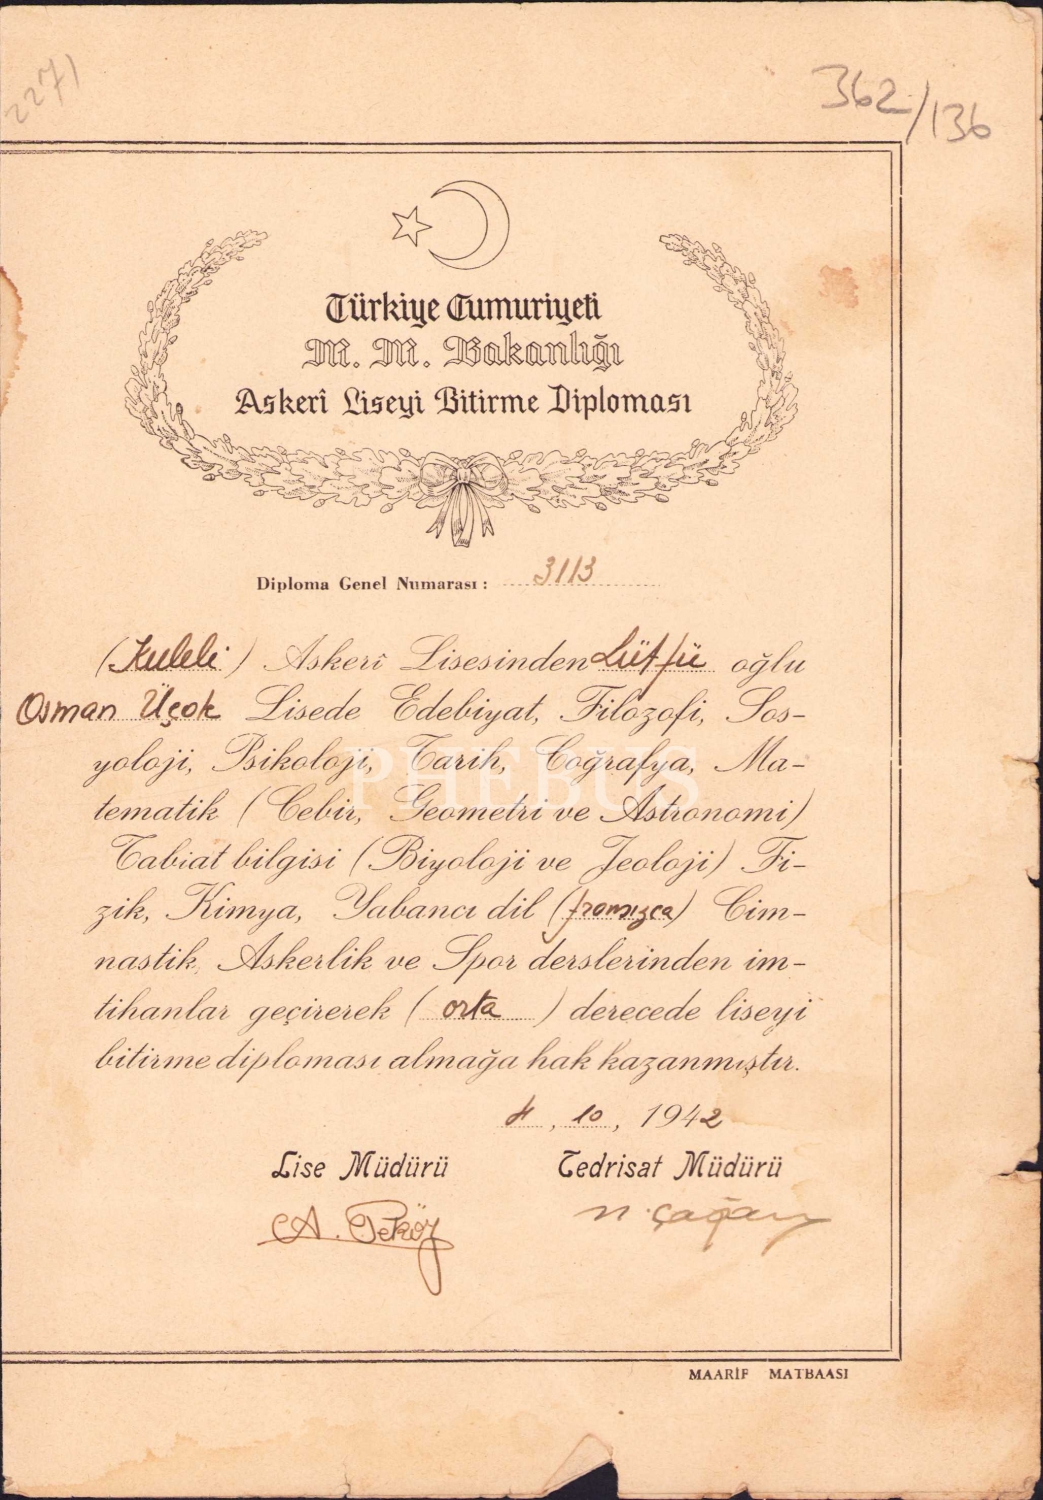 2271
362/136
Türkiye Cumuriyeti
M. M. Bakanlığı
Askerî Liseyi Bitirme Diploması
Diploma Genel Numarası : 3113
(Kuleli) Askerî Lisesinden Lütfü oğlu
Osman Üçok Lisede Edebiyat, Filozofi, Sos-
yoloji, Psikoloji, Tarih, Coğrafya, Ma-
PHEBUS
tematik (Cebir, Geometri ve Astronomi)
Tabiat bilgisi (Biyoloji ve Jeoloji) Fi-
zik, Kimya, Yabancı dil (fransızca) Cim-
nastik, Askerlik ve Spor derslerinden im-
tihanlar geçirerek (orta) derecede liseyi
bitirme diploması almağa hak kazanmıştır.
10, 1942
Lise Müdürü Tedrisat Müdürü
A. Peköz N. Çağan
MAARİF MATBAASI